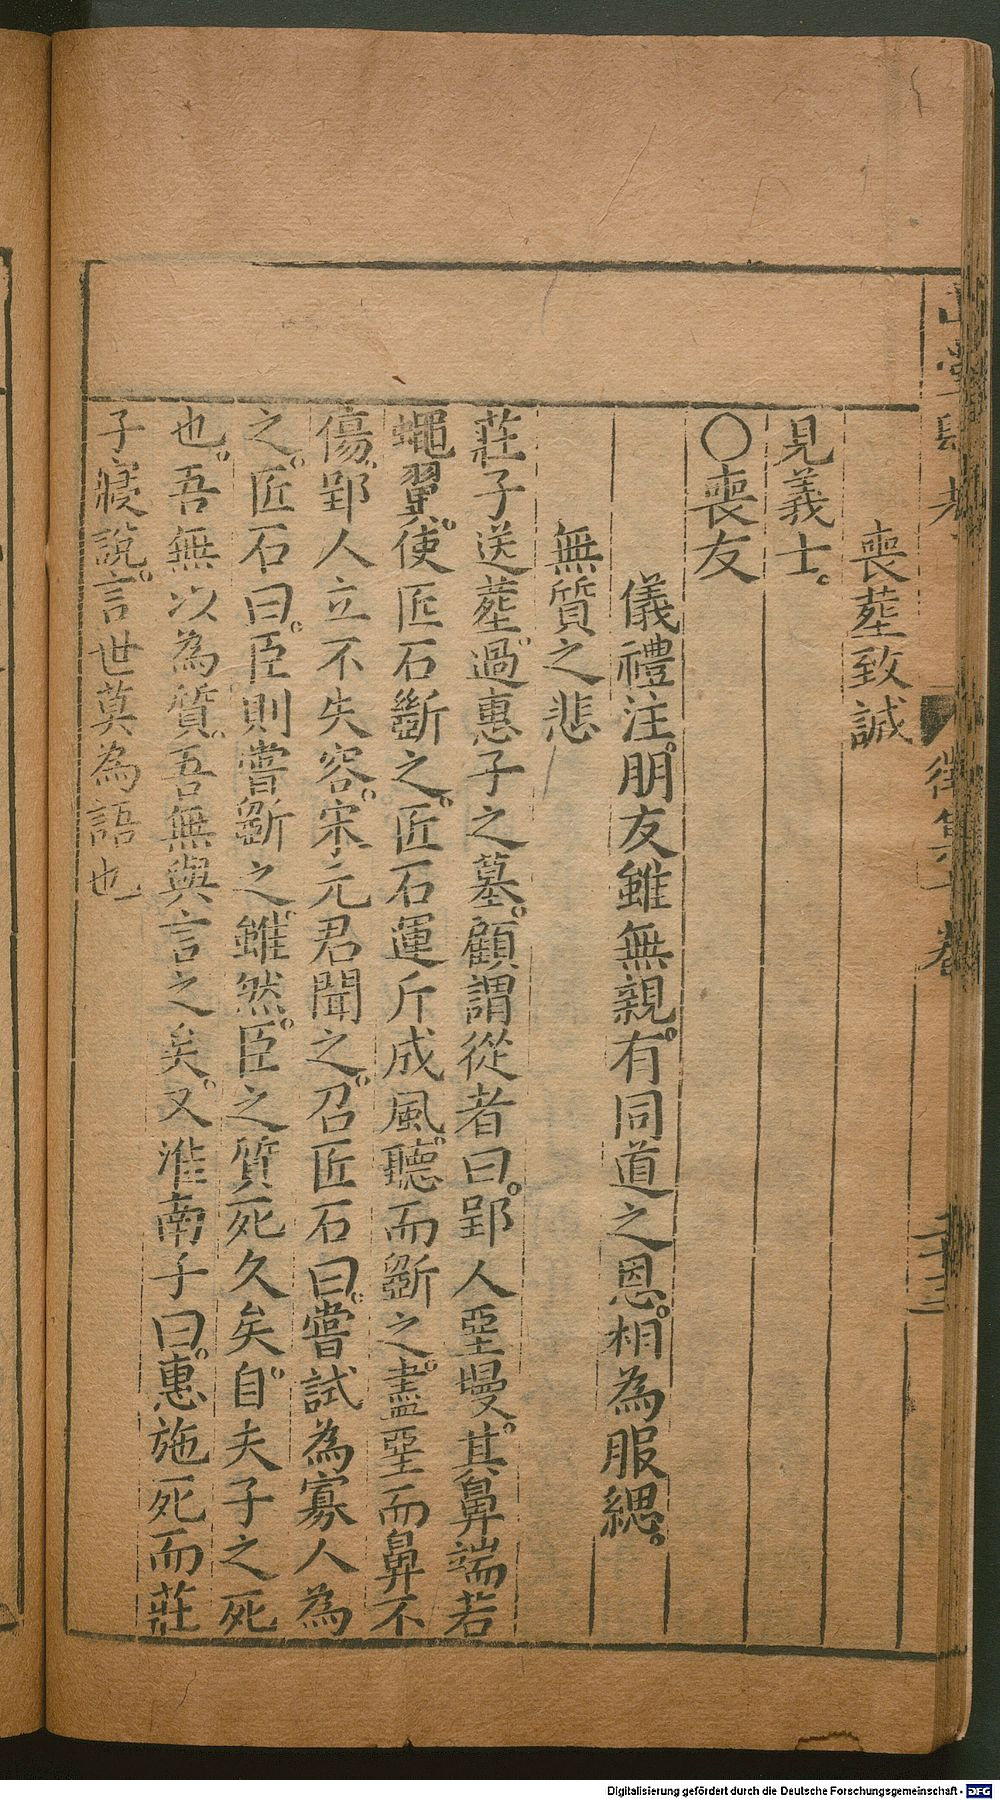 喪塟致誠
見義士。
〇喪友
儀禮注。朋友雖無親。有同道之恩。相為服緦。
無質之悲
莊子送塟。過惠子之墓。顧謂從者曰。郢人堊墁。其鼻端若
蠅翼。使匠石斲之。匠石運斤成風。聽而斲之。盡堊而鼻不
傷。郢人立不失容。宋元君聞之。召匠石曰。嘗試為寡人為
之。匠石曰。臣則嘗斲之。雖然。臣之質死久矣。自夫子之死
也。吾無以為質。吾無與言之矣。又淮南子曰。惠施死而莊
子寢說。言世莫為語也
Digitalisierung gefördert durch die Deutsche Forschungsgemeinschaft - DFG